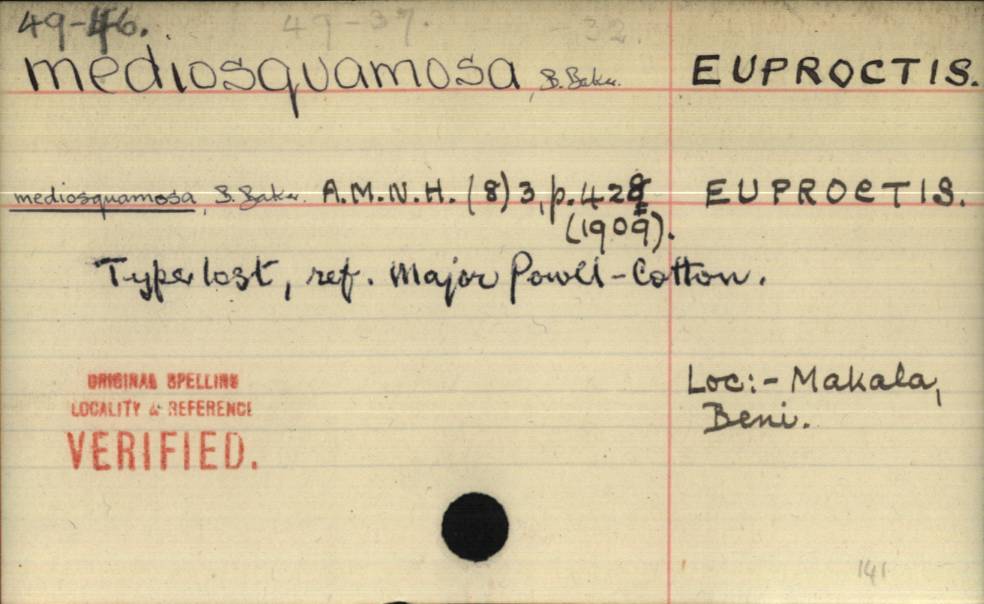 49-46. 49-37. 32.
mediosquamosa, B. Baker. EUPROCTIS.
mediosquamosa, B. Baker. A.M.N.H. (8) 3, p. 428 EUPROCTIS.
(1909).
Type lost, ref. Major Powell-Cotton.
ORIGINAL SPELLING
LOCALITY & REFERENCE
VERIFIED.
Loc:- Makala,
Beni.
141